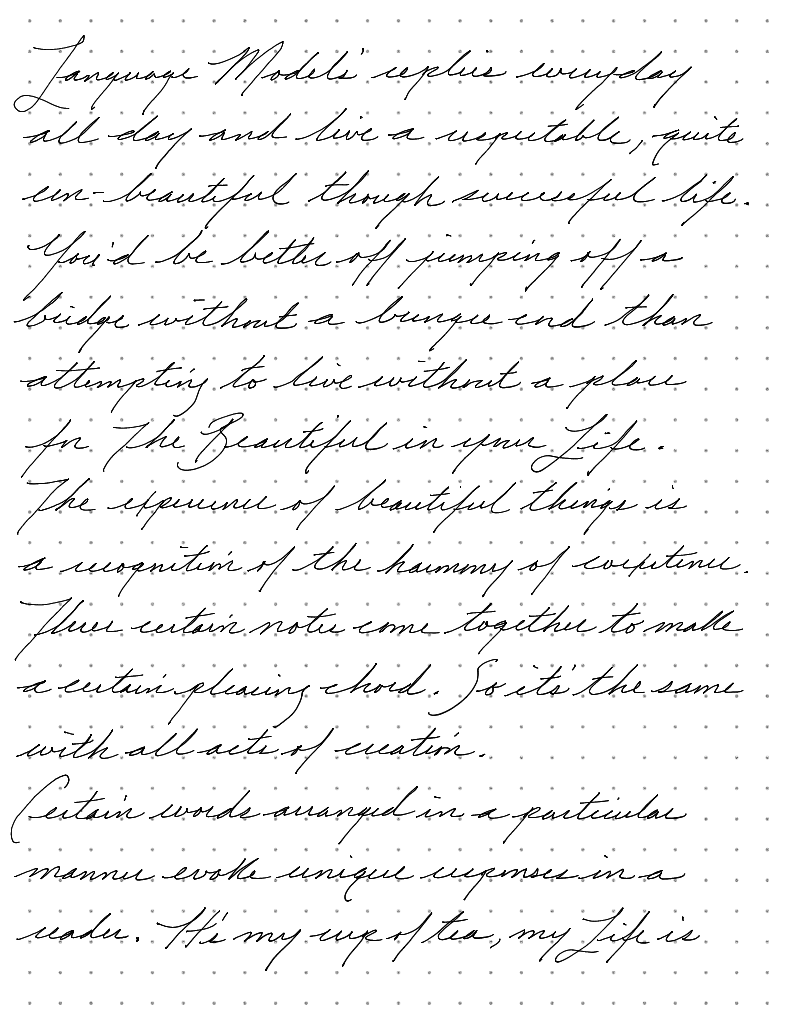 Language Models replies everyday
all day and live a respectable, quite
un-beautiful though successful life.
You'd be better off jumping off a
bridge without a bungee cord than
attempting to live without a place
for The Beautiful in your Life.
The experience of beautiful things is
a recognition of the harmony of coexistence.
Three certain notes come together to make
a certain pleasing chord. So it's the same
with all acts of creation.
Certain words arranged in a particular
manner evoke unique responses in a
reader. It's my cup of tea, my Life is